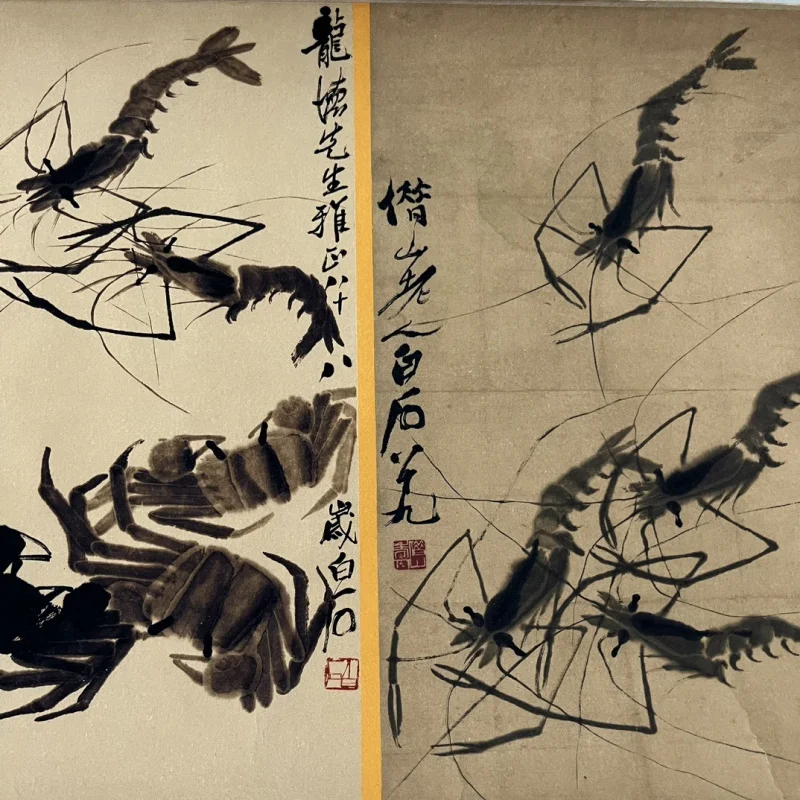 龍先生雅正八十八歲白石
借山老人白石八十九